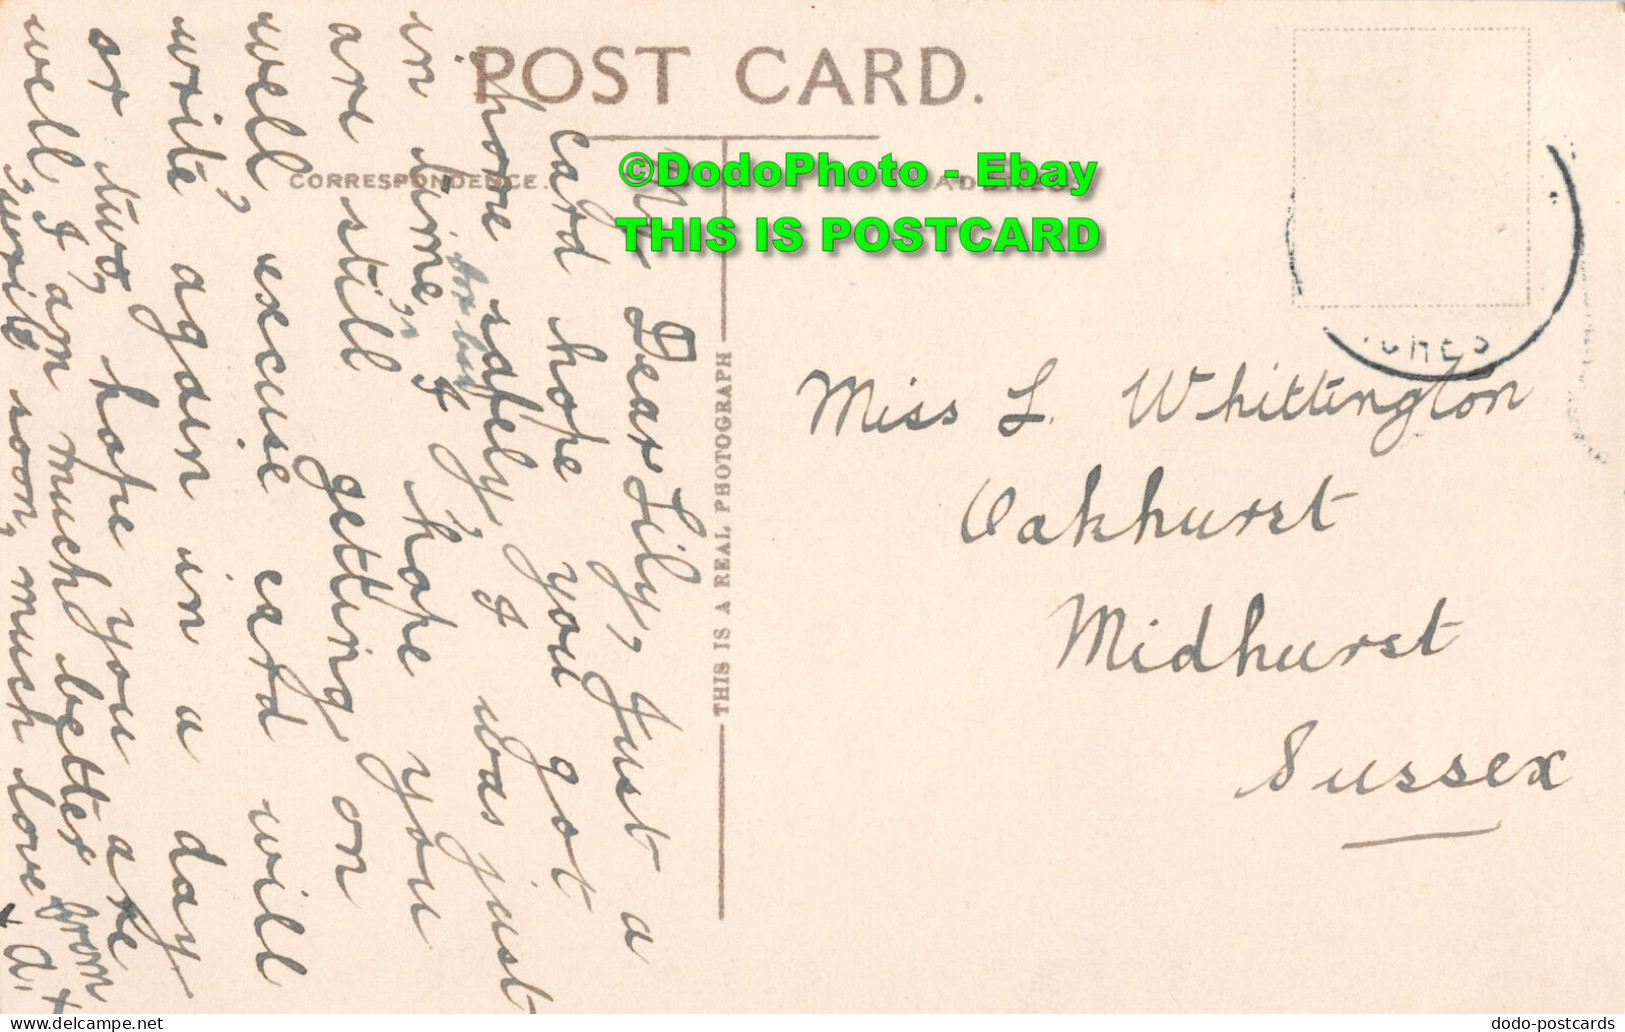 POST CARD.
CORRESPONDENCE.
©DodoPhoto - Ebay
THIS IS POSTCARD
THIS IS A REAL PHOTOGRAPH
My Dear Lily, Just a
card hope you got
home safely, I was just
in time, for bus I hope you
are still getting on
well, excuse card will
write again in a day
or two, hope you are
well I am much better
write soon, much love from
A.
Miss L. Whittington
Oakhurst
Midhurst
Sussex
www.delcampe.net
dodo-postcards